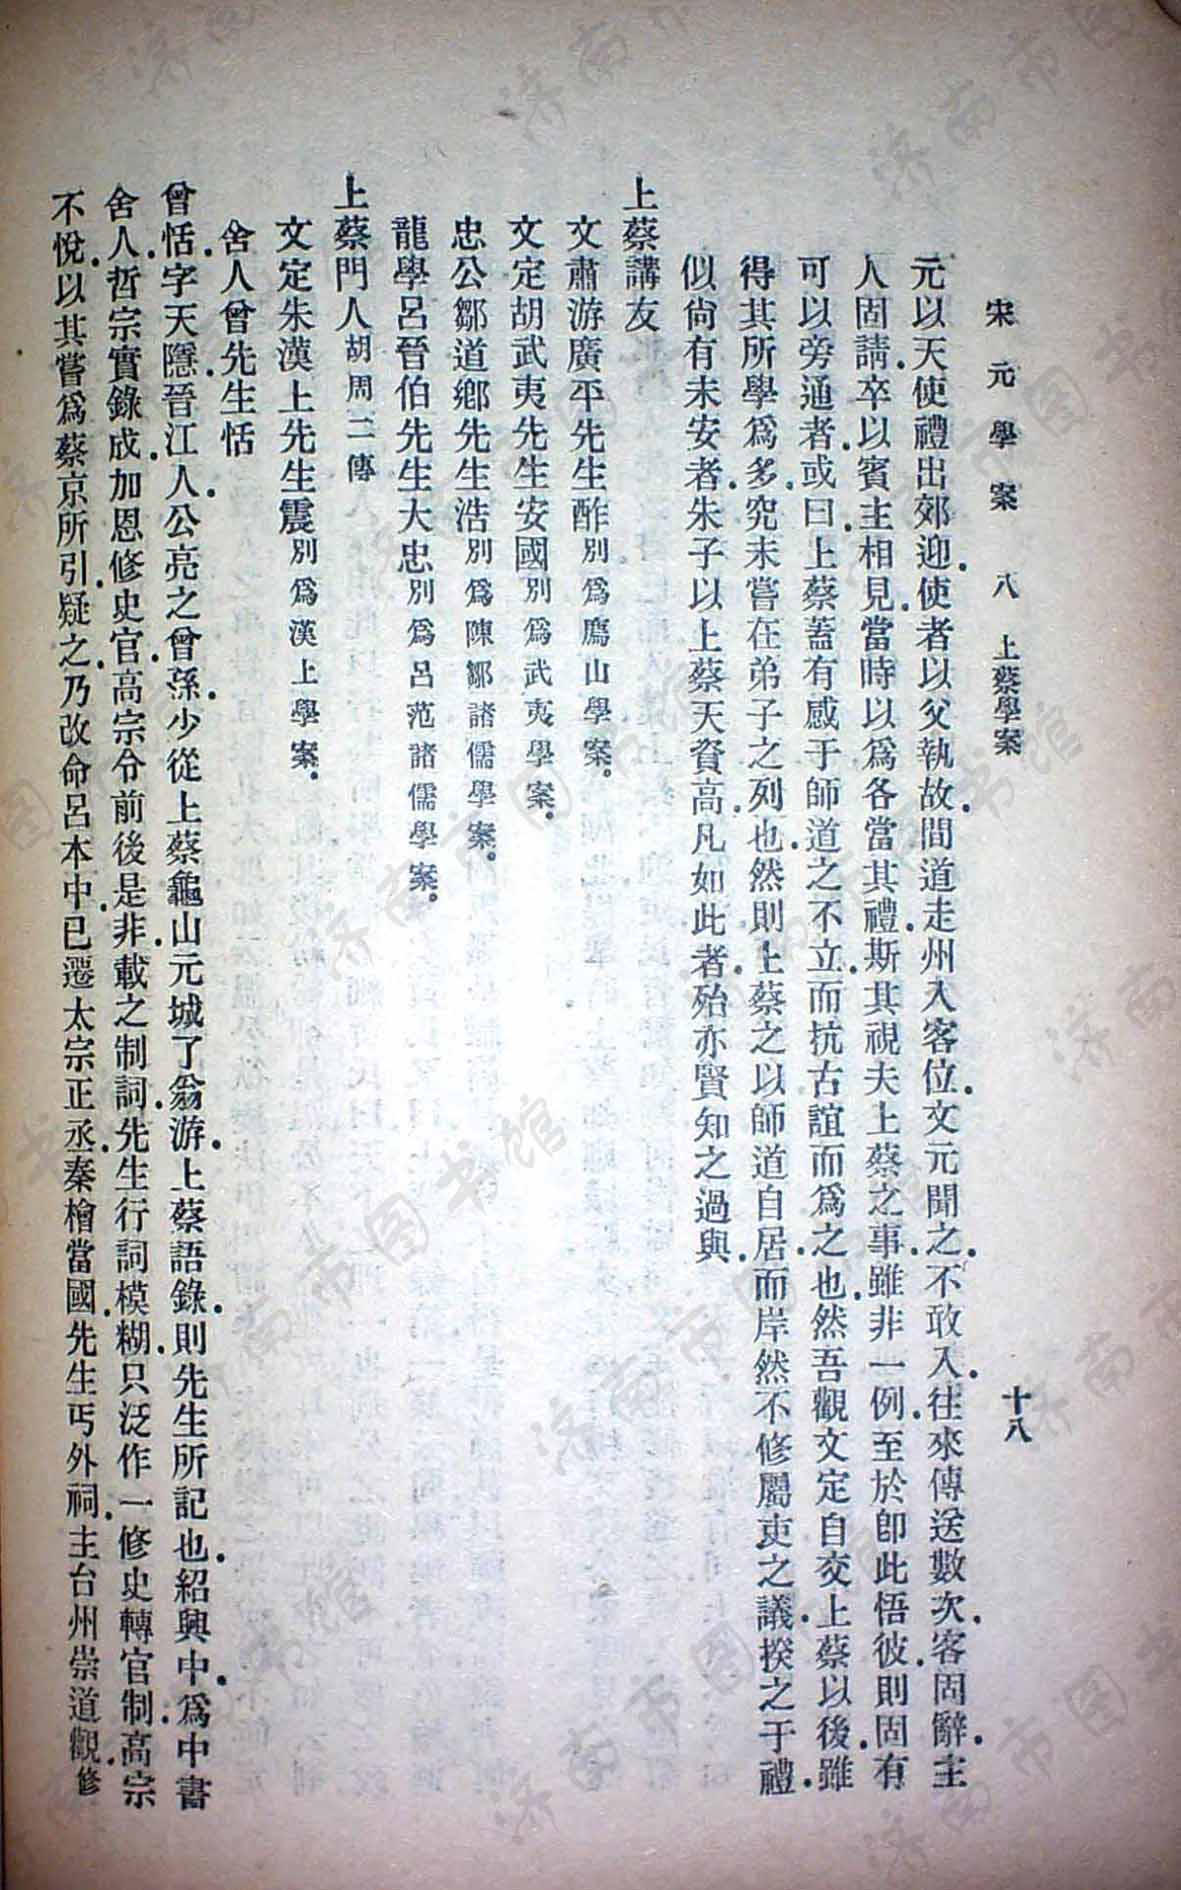 宋元學案 八 上蔡學案 十八
元以天使禮出郊迎使者以父執故間道走州入客位文元聞之不敢入往來傳送數次客固辭主
人固請卒以賓主相見當時以爲各當其禮斯其視夫上蔡之事雖非一例至於卽此悟彼則固有
可以旁通者或曰上蔡蓋有感于師道之不立而抗古誼而爲之也然吾觀文定自交上蔡以後雖
得其所學爲多究未嘗在弟子之列也然則上蔡之以師道自居而岸然不修屬吏之議揆之于禮
似尙有未安者朱子以上蔡天資高凡如此者殆亦賢知之過與
上蔡講友
文肅游廣平先生酢別爲廌山學案。
文定胡武夷先生安國別爲武夷學案。
忠公鄒道鄕先生浩別爲陳鄒諸儒學案。
龍學呂晉伯先生大忠別爲呂范諸儒學案。
上蔡門人胡周二傳
文定朱漢上先生震別爲漢上學案。
舍人曾先生恬
曾恬字天隱晉江人公亮之曾孫少從上蔡龜山元城了翁游上蔡語錄則先生所記也紹興中爲中書
舍人哲宗實錄成加恩修史官高宗令前後是非載之制詞先生行詞模糊只泛作一修史轉官制高宗
不悅以其嘗爲蔡京所引疑之乃改命呂本中已遷太宗正丞秦檜當國先生丐外祠主台州崇道觀修